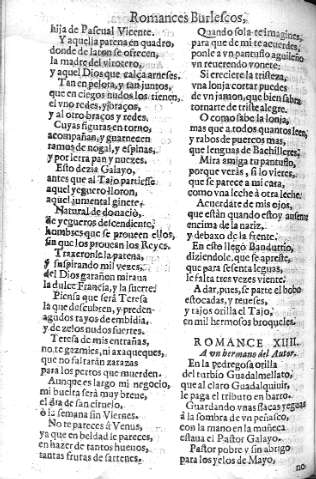 Romances Burlescos,
hija de Pascual Vicente.
Y aquella patena en quadro,
donde de laton se ofrecen,
la madre del virotero,
y aquel Dios que calça arneses.
Tan en pelota, y tan juntos,
que en ciegos nudos los tienen,
el vno redes, y braços,
y al otro braços y redes.
Cuyas figuras en torno,
acompañan, y guarnecen
ramos de nogal, y espinas,
y por letra pan y nuezes.
Esto dezia Galayo,
antes que al Tajo partiesse
aquel yeguero lloron,
aquel jumental ginete,
Natural de do nacio,
de yegueros descendiente,
hombres que se proueen ellos,
sin que los prouean los Reyes.
Traxeronle la patena,
y suspirando mil vezes,
del Dios garañon miraua
la dulce Francia, y la suerte.
Piensa que serà Teresa
la que descubren, y prenden
agudos rayos de embidia,
y de zelos nudos fuertes.
Teresa de mis entrañas,
no te gazmies, ni axaqueques,
que no faltaràn zarazas
para los perros que muerden.
Aunque es largo mi negocio,
mi buelta serà muy breue,
el dia de san ciruelo,
ò la semana sin Viernes.
No te pareces à Venus,
ya que en beldad le pareces,
en hazer de tantos hueuos,
tantas frutas de sartenes.
Quando sola te imagines,
para que de mi te acuerdes,
ponle a vn pantuflo aguileño
vn reuerendo vonete.
Si creciere la tristeza,
vna lonja cortar puedes
de vn jamon, que bien sabra
tornarte de triste alegre.
O como sabe la lonja,
mas que a todos quantos leen,
y rabos de puercos mas,
que lenguas de Bachilleres.
Mira amiga tu pantuflo,
porque veràs, si lo vieres,
que se parece a mi cara,
como vna leche à otra leche.
Acuerdate de mis ojos,
que estàn quando estoy ausente
encima de la nariz,
y debaxo de la frente.
En esto llegò Bandurrio,
diziendole, que se apreste,
que para sesenta leguas,
le falta tres vezes veinte.
A dar, pues, se parte el bobo
estocadas, y reueses,
y tajos orilla el Tajo,
en mil hermosos broqueles.
ROMANCE XIIII.
A vn hermano del Autor.
En la pedregosa orilla
del turbio Guadalmellato,
que al claro Guadalquiuir,
le paga el tributo en barro.
Guardando vnas flacas yeguas
à la sombra de vn peñasco,
con la mano en la muñeca
estaua el Pastor Galayo.
Pastor pobre y sin abrigo
para los yelos de Mayo,
no